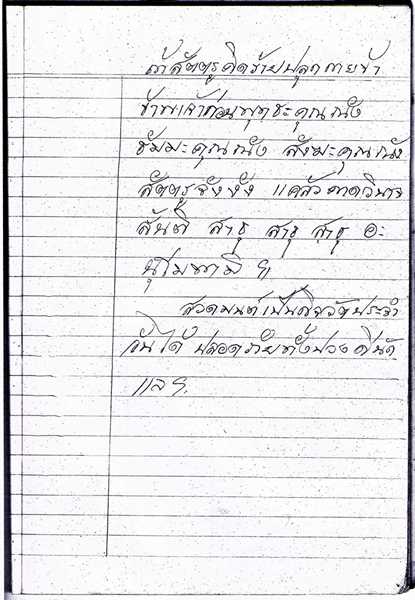 ถ้าสัตตรูคิดร้ายปลุกกายข้า
ข้าพเจ้าก่อนพุทธะคุณณัง
ธัมมะคุณณัง สังฆะคุณณัง
สัตตรูจังงัง แคล้วคาดวินาจ
สันติ สาธุ สาธุ สาธุ อะ
นุโมทามิ ฯ
สวดมนต์เป็นกิจวัตประจำ
วันได้ ปลอดภัยทั้งปวงดีนัก
แล ฯ